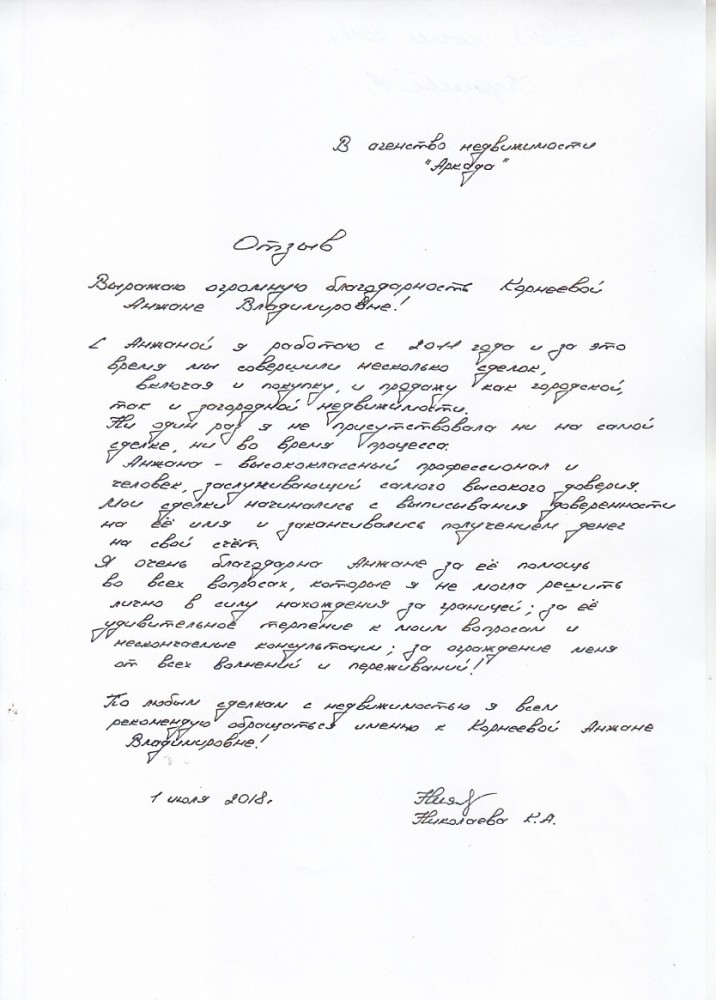 В агенство недвижимости
"Аркада"
Отзыв
Выражаю огромную благодарность Корнеевой
Анжане Владимировне!
С Анжаной я работаю с 2011 года и за это
время мы совершили несколько сделок,
включая и покупку, и продажу как городской,
так и загородной недвижимости.
Ни один раз я не присутствовала ни на самой
сделке, ни во время процесса.
Анжана - высококлассный профессионал и
человек, заслуживающий самого высокого доверия.
Мои сделки начинались с выписывания доверенности
на её имя и заканчивались получением денег
на свой счёт.
Я очень благодарна Анжане за её помощь
во всех вопросах, которые я не могла решить
лично в силу нахождения за границей; за её
удивительное терпение к моим вопросам и
нескончаемые консультации; за ограждение меня
от всех волнений и переживаний!
По любым сделкам с недвижимостью я всем
рекомендую обращаться именно к Корнеевой Анжане
Владимировне!
1 июля 2018г.
Николаева К.А.